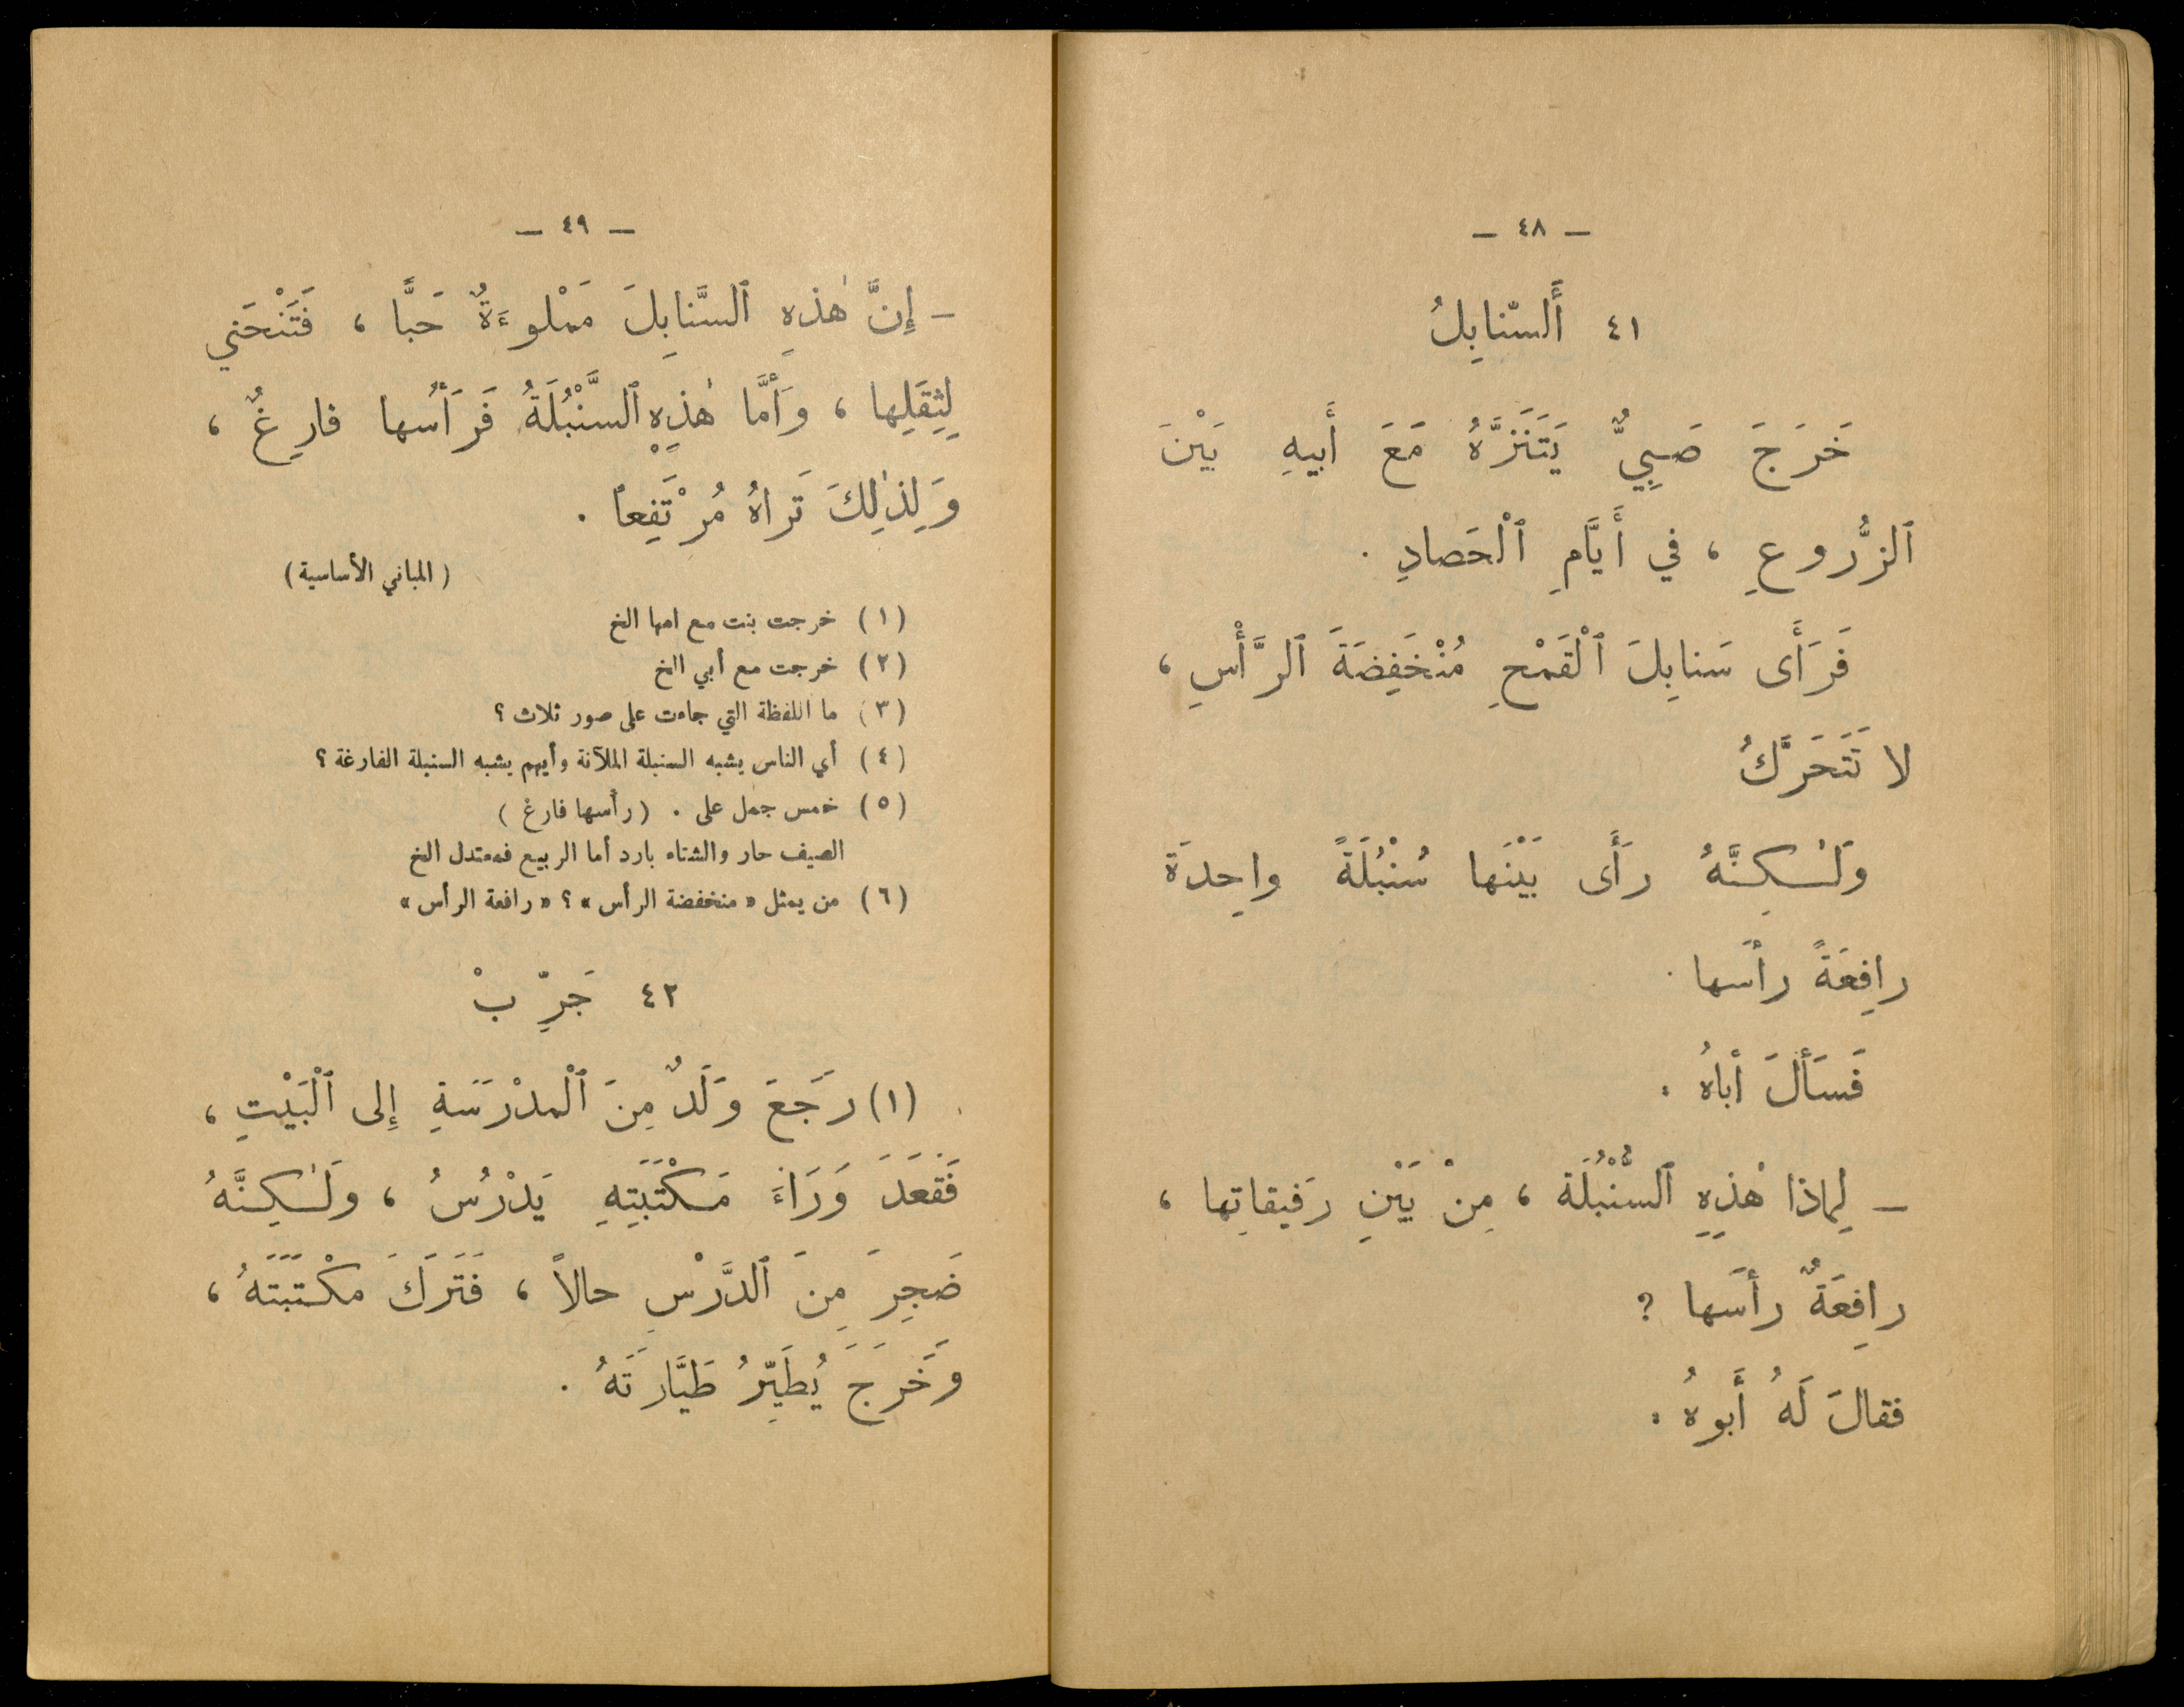 — ٤٨ —
٤١ أَلسّنابِلُ
خَرَجَ صَبِيٌّ يَتَنَزَّهُ مَعَ أَبيهِ بَيْنَ
ٱلزُّروعِ ، في أَيَّامِ ٱلْحَصادِ .
فَرَأَى سَنابِلَ ٱلْقَمْحِ مُنْخَفِضَةَ ٱلرَّأْسِ ،
لا تَتَحَرَّكُ
وَلٰكِنَّهُ رَأَى بَيْنَها سُنْبُلَةً واحِدَة
رافِعَةً رأسَها .
فَسَأَلَ أباهُ :
— لِماذا هٰذِهِ ٱلسُّنْبُلَة ، مِنْ بَيْنِ رَفيقاتِها ،
رافِعَةٌ رأسَها ؟
فقالَ لَهُ أَبوهُ :
— ٤٩ —
— إِنَّ هٰذِهِ ٱلسَّنابِلَ مَمْلوءَةٌ حَبًّا ، فَتَنْحَني
لِثِقَلِها ، وَأَمَّا هٰذِهِ ٱلسَّنْبُلَةُ فَرَأسُها فارِغٌ ،
وَلِذٰلِكَ تَراهُ مُرْتَفِعاً .
( المباني الأساسية )
(١) خرجت بنت مع امها الخ
(٢) خرجت مع أبي الخ
(٣) ما اللفظة التي جاءت على صور ثلاث ؟
(٤) أي الناس يشبه السنبلة الملآنة وأيهم يشبه السنبلة الفارغة ؟
(٥) خمس جمل على . ( رأسها فارغ )
الصيف حار والشتاء بارد أما الربيع فمعتدل الخ
(٦) من يمثل « منخفضة الرأس » ؟ « رافعة الرأس »
٤٢ جَرِّبْ
(١) رَجَعَ وَلَدٌ مِنَ ٱلْمدْرَسَةِ إِلى ٱلْبَيْتِ ،
فَقَعَدَ وَرَاءَ مَكْتَبَتِهِ يَدْرُسُ ، وَلٰكِنَّهُ
ضَجِرَ مِنَ ٱلدَّرْسِ حالاً ، فَتَرَكَ مَكْتَبَتَهُ ،
وَخَرَجَ يُطَيِّرُ طَيَّارَتَهُ .